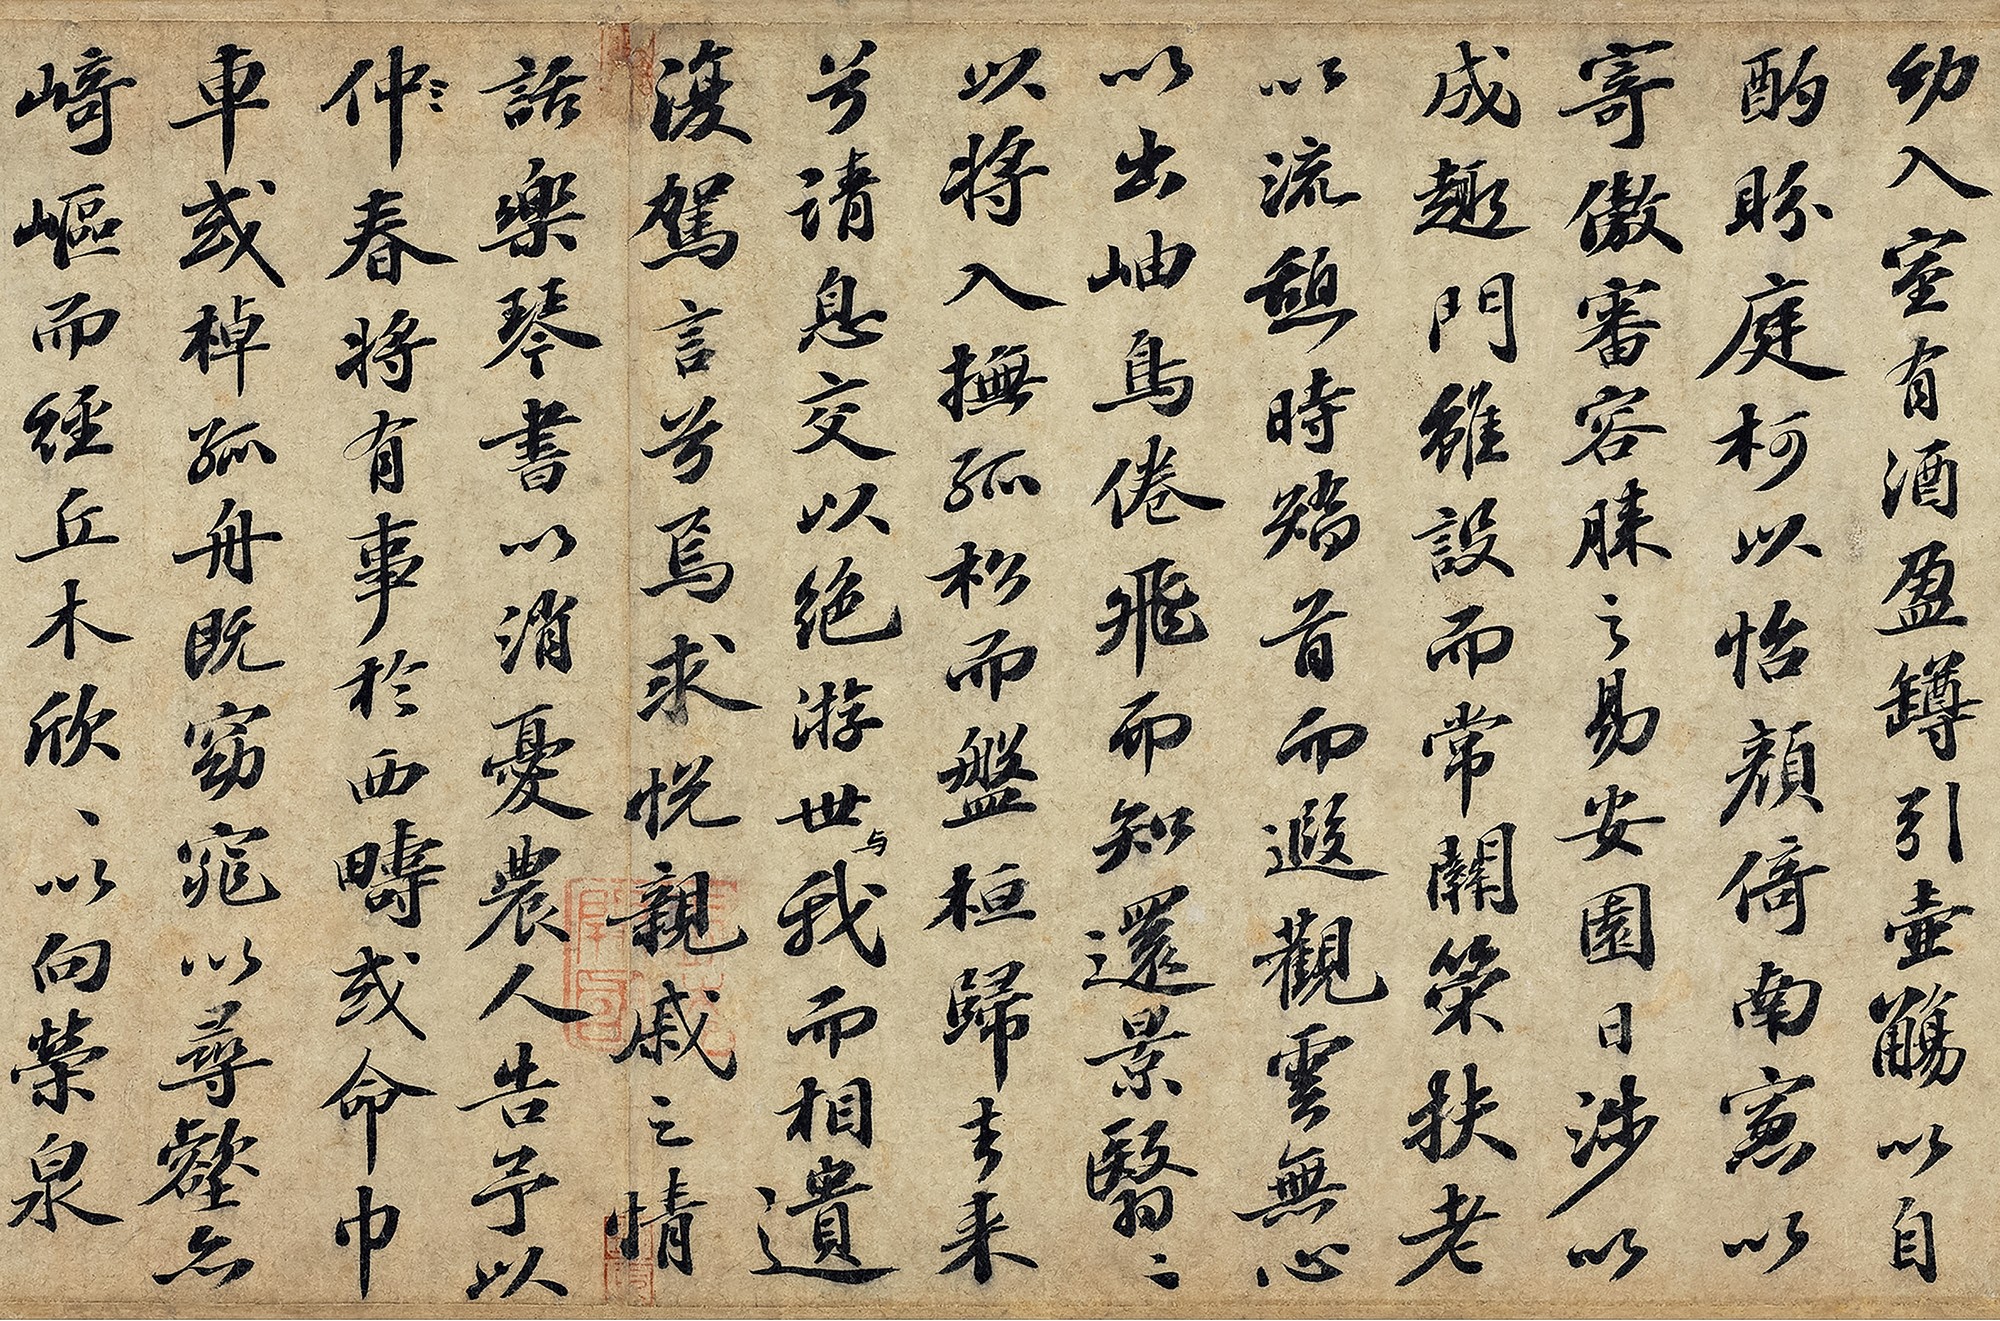 幼入室有酒盈罇引壺觴以自
酌盼庭柯以怡顏倚南窓以
寄傲審容膝之易安園日涉以
成趣門雖設而常關策扶老
以流憩時矯首而遐觀雲無心
以出岫鳥倦飛而知還景翳〻
以將入撫孤松而盤桓歸去来
兮請息交以絕游世与我而相遺
復駕言兮焉求悅親戚之情
話樂琴書以消憂農人告予以
仲春將有事於西疇或命巾
車或棹孤舟既窈窕以尋壑亦
崎嶇而經丘木欣〻以向榮泉